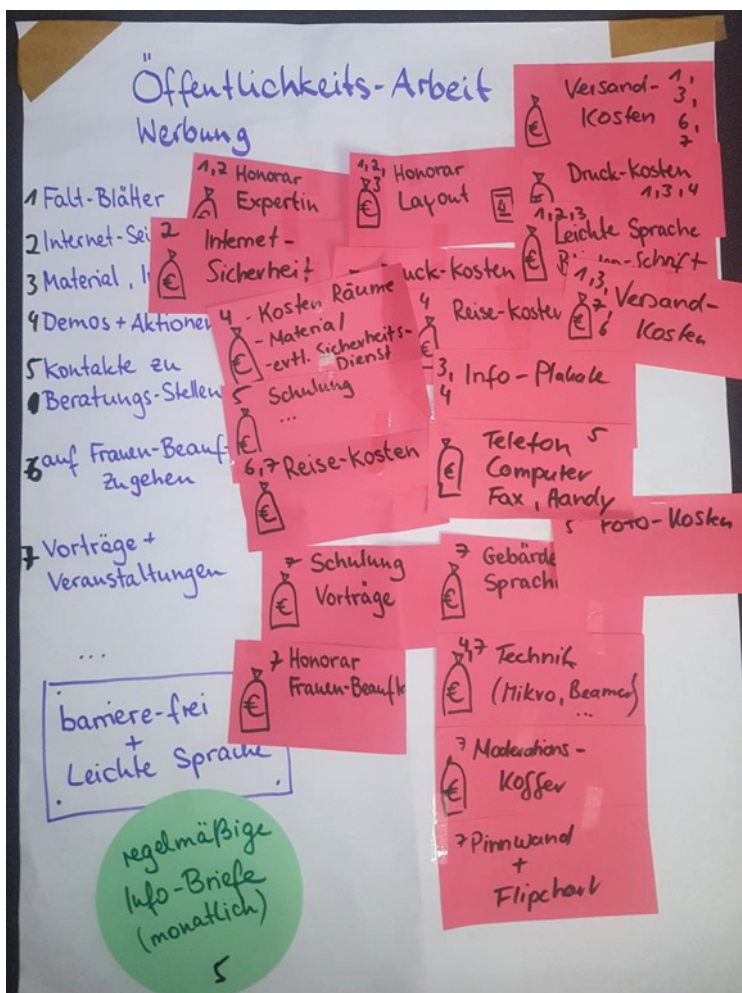 Öffentlichkeits-Arbeit
Werbung
1 Falt-Blätter
2 Internet-Sei
3 Material, I
4 Demos + Aktionen
5 Kontakte zu
Beratungs-Stellen
6 auf Frauen-Beauf-
zugehen
7 Vorträge +
Veranstaltungen
...
barriere-frei
+
Leichte Sprache
regelmäßige
Info-Briefe
(monatlich)
5
1,2 Honorar
Expertin
€
1,2,
3
Honorar
Layout
€
Versand-
Kosten
1,
3,
6,
7
€
Druck-Kosten
1,3,4
€
2 Internet-
Sicherheit
€
uck-Kosten
1,2,3
Leichte Sprache
-Schrift
€
4 - Kosten Räume
- Material
- evtl. Sicherheits-
Dienst
€
4
Reise-Koster
€
1,3,
7,
6
Versand-
Kosten
€
5 Schulung
...
€
3,
4
Info-Plakate
6,7 Reise-Kosten
€
Telefon 5
Computer
Fax, Handy
€
5 FOTO-Kosten
7 Schulung
Vorträge
€
7 Gebärde
Sprach
€
7 Honorar
Frauen-Beauft
€
4,7 Technik
(Mikro, Beamer)
...
€
7 Moderations-
Koffer
€
7 Pinnwand
+
Flipchart